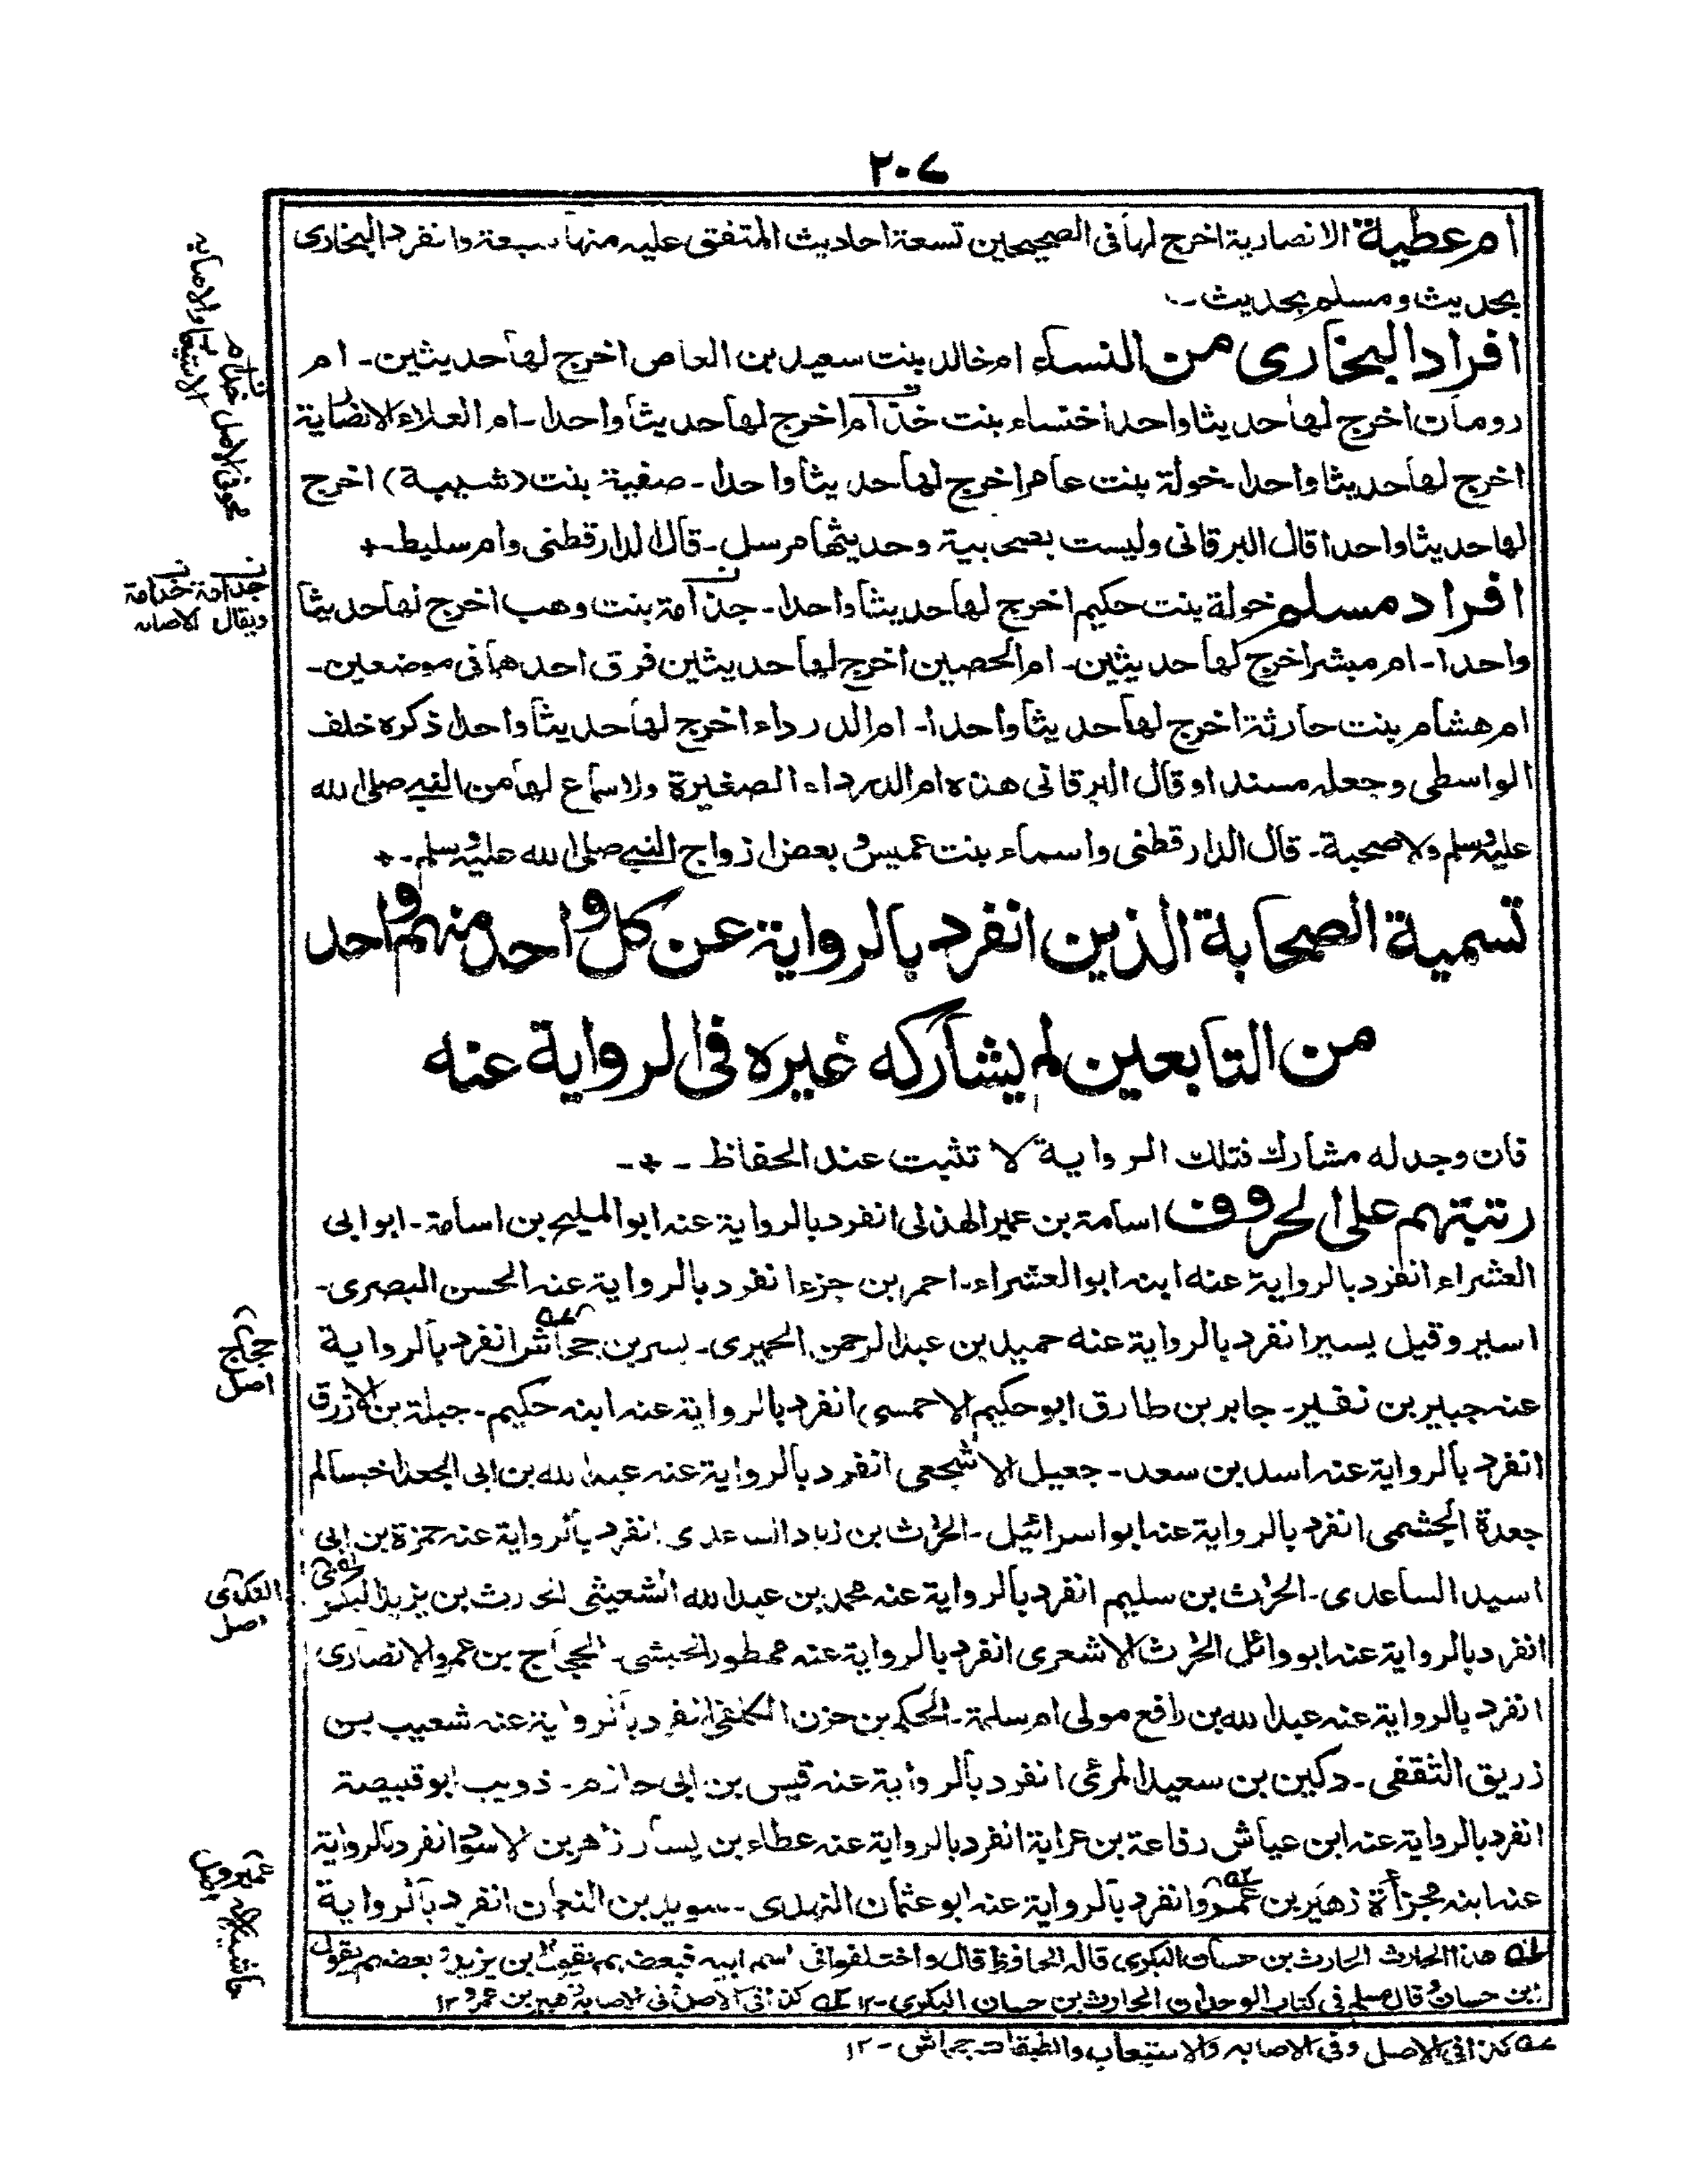 ٢٠٧
ام عطية الانصارية اخرج لها فى الصحيحين تسعة احاديث المتفق عليه منها سبعة وانفرد البخارى
بحديث ومسلم بحديث -
افراد البخارى من النساء ام خالد بنت سعيد بن العاص اخرج لها حديثين - ام
رومان اخرج لها حديثا واحدا خنساء بنت خذام اخرج لها حديثا واحدا - ام العلاء الانصارية
اخرج لها حديثا واحدا - خولة بنت عامر اخرج لها حديثا واحدا - صفية بنت (شيبة) اخرج
لها حديثا واحدا قال البرقانى وليست بصحابية وحديثها مرسل - قال الدارقطنى وام سليط - +
افراد مسلم خولة بنت حكيم اخرج لها حديثا واحدا - جذامة بنت وهب اخرج لها حديثا
واحدا - ام مبشر اخرج لها حديثين - ام الحصين اخرج لها حديثين فرق احدهما فى موضعين -
ام هشام بنت حارثة اخرج لها حديثا واحدا - ام الدرداء اخرج لها حديثا واحدا ذكره خلف
الواسطى وجعله مسندا وقال البرقانى هذه ام الدرداء الصغيرة ولا سماع لها من النبى صلى الله
عليه وسلم ولا صحبة - قال الدارقطنى واسماء بنت عميس وبعض ازواج النبى صلى الله عليه وسلم - +
تسمية الصحابة الذين انفرد بالرواية عن كل واحد منهم واحد
من التابعين لم يشاركه غيره فى الرواية عنه
فان وجد له مشارك فتلك الرواية لا تثبت عند الحفاظ - + -
رتبتهم على الحروف اسامة بن عمير الهذلى انفرد بالرواية عنه ابو المليح بن اسامة - ابو ابى
العشراء انفرد بالرواية عنه ابنه ابو العشراء - احمر بن جزء انفرد بالرواية عنه الحسن البصرى -
اسير وقيل يسير انفرد بالرواية عنه حميد بن عبد الرحمن الحميرى - بسر بن جحاش انفرد بالرواية
عنه جبير بن نفير - جابر بن طارق ابو حكيم الاحمسى انفرد بالرواية عنه ابنه حكيم - جبلة بن الازرق
انفرد بالرواية عنه اسد بن سعد - جعيل الاشجعى انفرد بالرواية عنه عبد الله بن ابى الجعد اخ سالم
جعدة الجشمى انفرد بالرواية عنه ابو اسرائيل - الحرث بن زياد الساعدى انفرد بالرواية عنه حمزة بن ابى
اسيد الساعدى - الحرث بن سليم انفرد بالرواية عنه محمد بن عبد الله الشعيثى الحارث بن يزيد البكرى
انفرد بالرواية عنه ابو وائل الحرث الاشعرى انفرد بالرواية عنه ممطور الحبشى - الحجاج بن عمرو الانصارى
انفرد بالرواية عنه عبد الله بن رافع مولى ام سلمة - الحكم بن حزن الكلفى انفرد بالرواية عنه شعيب بن
زريق الثقفى - دكين بن سعيد المزنى انفرد بالرواية عنه قيس بن ابى حازم - ذويب ابو قبيصة
انفرد بالرواية عنه ابن عباش رفاعة بن عرابة انفرد بالرواية عنه عطاء بن يسار زاهر بن الاسود انفرد بالرواية
عنه ابنه مجزأة زهير بن عمرو انفرد بالرواية عنه ابو عثمان النهدى - سويد بن النعمان انفرد بالرواية
هذا الحارث الحارث بن حسان البكرى قاله الحافظ قال واختلفوا فى اسم ابيه فبعضهم يقول بن يزيد وبعضهم يقول
ابن حسان وقال مسلم فى كتاب الوحدان الحارث بن حسان البكرى - ١٢ كذا فى الاصل وفى الاصابة زهير بن عمرو ١٢
كذا فى الاصل وفى الاصابه والاستيعاب والطبقات جحاش - ١٢
جدامة خدامة
ويقال الاصابه
حجاج
اصل
اصل